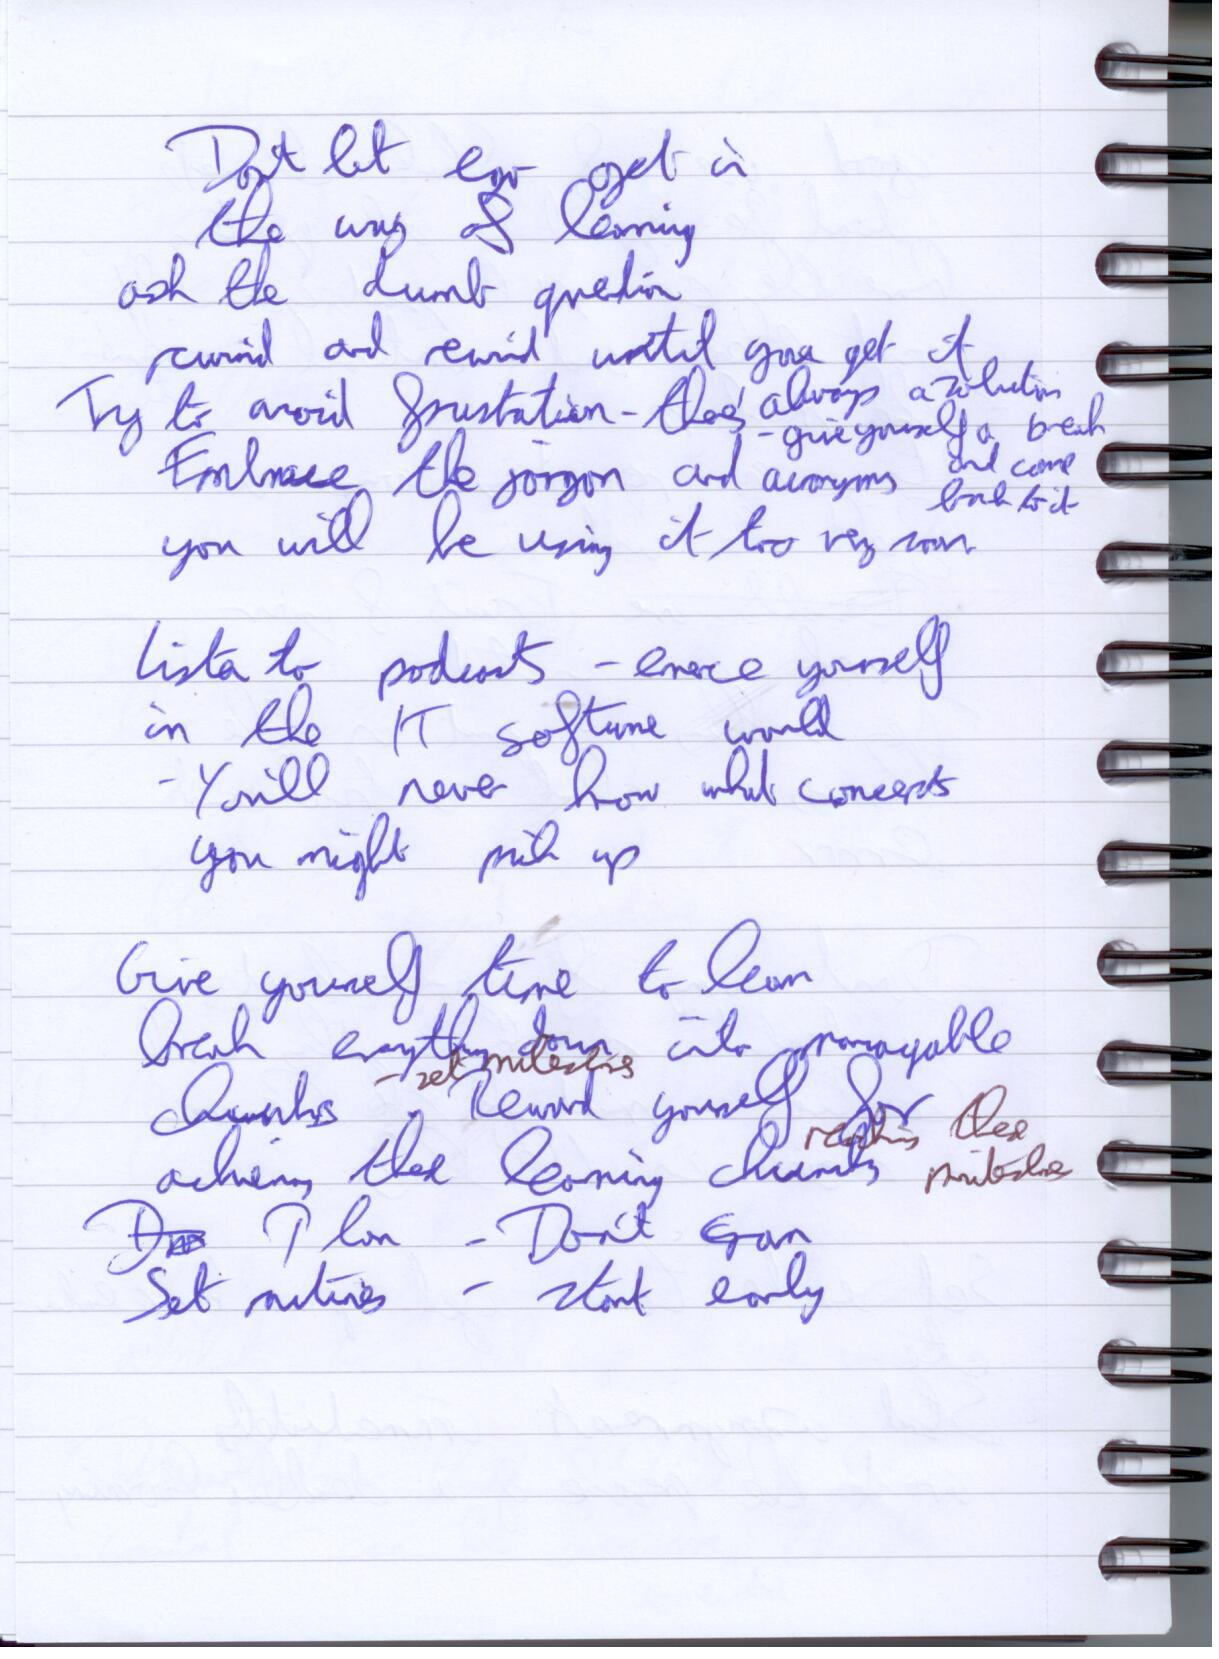 Dont let ego get in
the way of learning
ask the dumb question
rewind and rewind until you get it
Try to avoid frustation - theres always a solution
- give yourself a break
and come
back to it
Embrace the jargon and acronyms
you will be using it too very soon
Listen to podcasts - emerce yourself
in the IT software world
- You'll never know what concepts
you might pick up
Give yourself time to learn
break everything down into manageable
- set milestones
chunks. Reward yourself for
reaching these
achieving these learning chunks milestones
Plan - Don't Cram
Set routines - start early